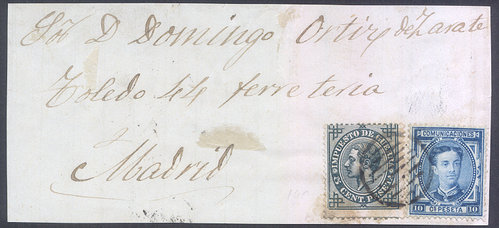 Sr D Domingo Ortiz de Zarate
Toledo 44 ferreteria
Madrid
IMPUESTO DE GUERRA
5 CENT. PESETA
COMUNICACIONES
10 Cs PESETA 10